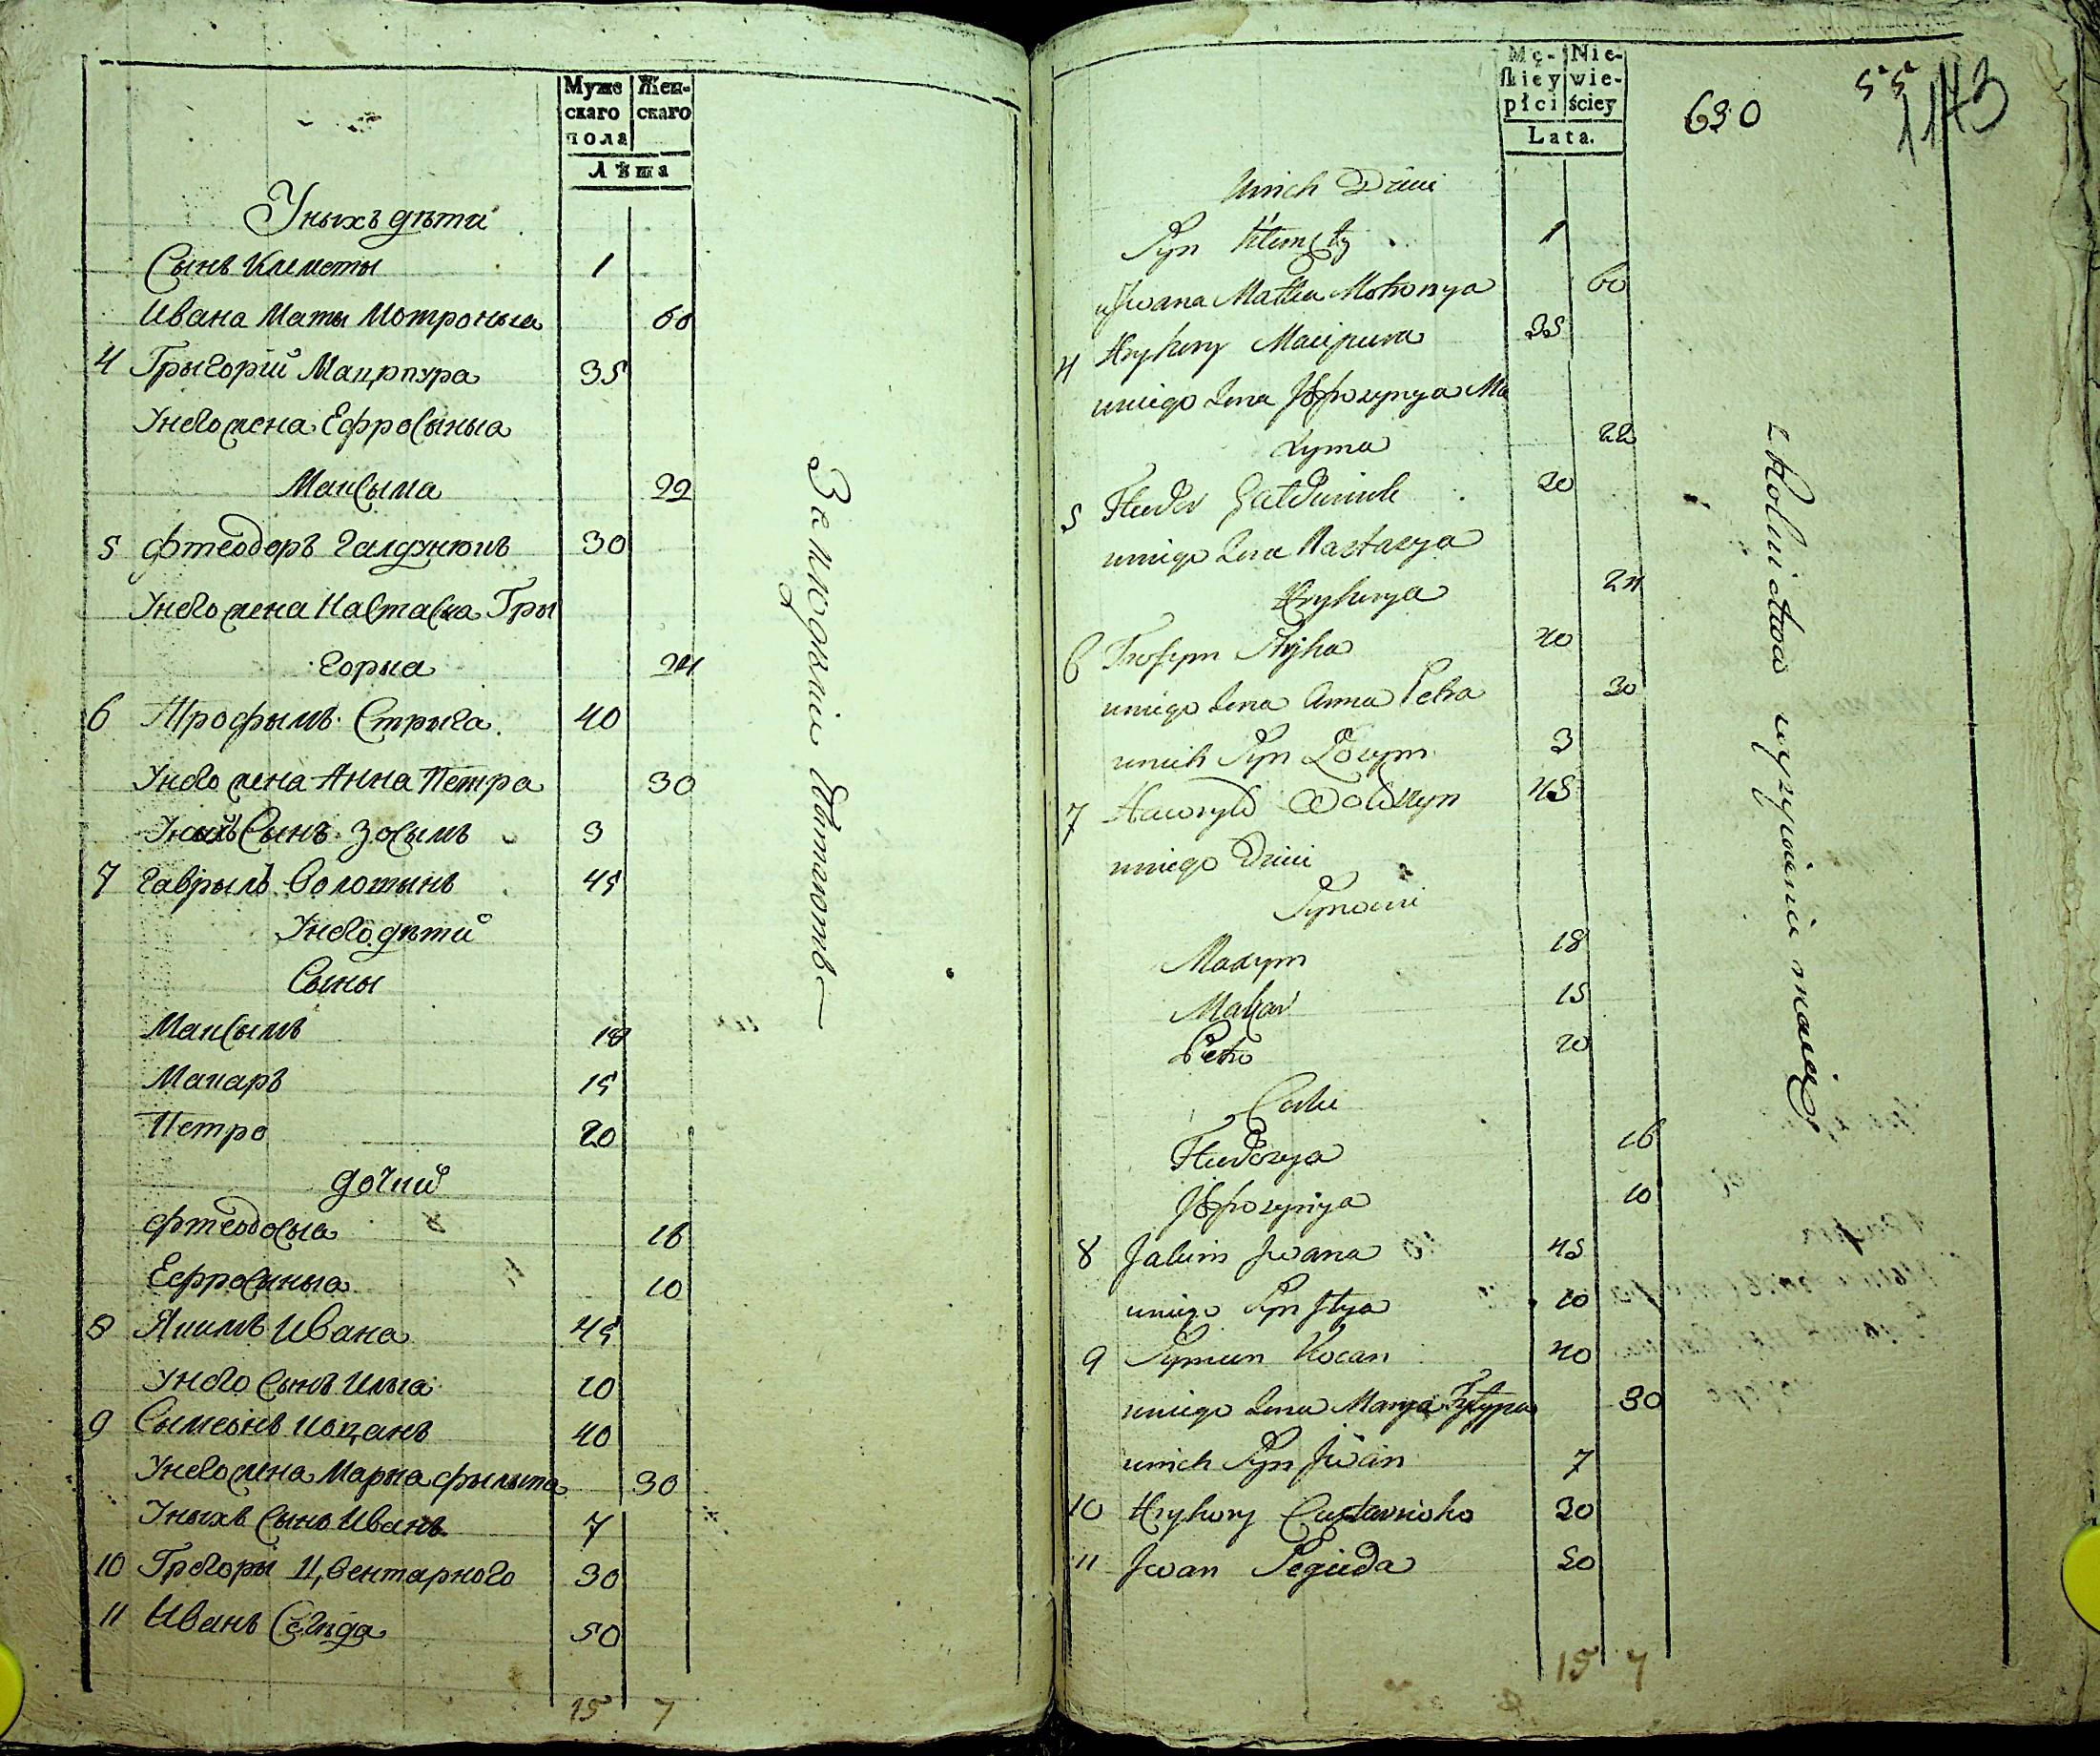 Муже
скаго
пола
Жен-
скаго
Лѣта
Уныхъ дѣти
Сынъ Климеты 1
Ивана Маты Мотроныа 60
4 Грыгорій Мацрпура 35
Унего жена Ефросыныа
Максыма 22
5 Фтеодоръ Галдунюкъ 30
Унего жена Настасыа Гры
горыа 24
6 Трофымъ Стрыга 40
Унего жена Анна Петра 30
Уныхъ Сынъ Зосымъ 3
7 Гаврылъ Волотынъ 45
Унего дѣти
Сыны
Максымъ 18
Макаръ 15
Петро 20
дочки
Фтеодосыа 16
Ефросиныа 10
8 Якимъ Ивана 45
Унего Сынъ Илыа 10
9 Сымеонъ Коцанъ 40
Унего жена Марыа Фылыпа 30
Уныхъ Сынъ Иванъ 7
10 Грегоры Цвентарного 30
11 Иванъ Сегѣда 50
15 7
Mę-
skiey
płci
Nie-
wie-
ściey
Lata.
630
55
1143
Unich Dzieci
Syn Klemęty 1
u Jwana Matka Motronya 60
4 Hryhory Macipura 35
uniego Zona Jefrozynya Ma
xyma 22
5 Fteodor Gałduniuk 30
uniego Zona Nastazya
Hryhorya 24
6 Trofym Stryha 40
uniego Zona Anna Petra 30
unich Syn Zozym 3
7 Hawryło Wołoszyn 45
uniego Dzieci
Synowie
Maxym 18
Makar 15
Petro 20
Corki
Fteodozya 16
Jefrozynya 10
8 Jakim Jwana 45
uniego Syn Jlya 10
9 Symeon Kocan 40
uniego Zona Marya Fylypa 30
unich Syn Jwan 7
10 Hryhory Cwętarnioho 30
11 Jwan Segieda 50
15 7